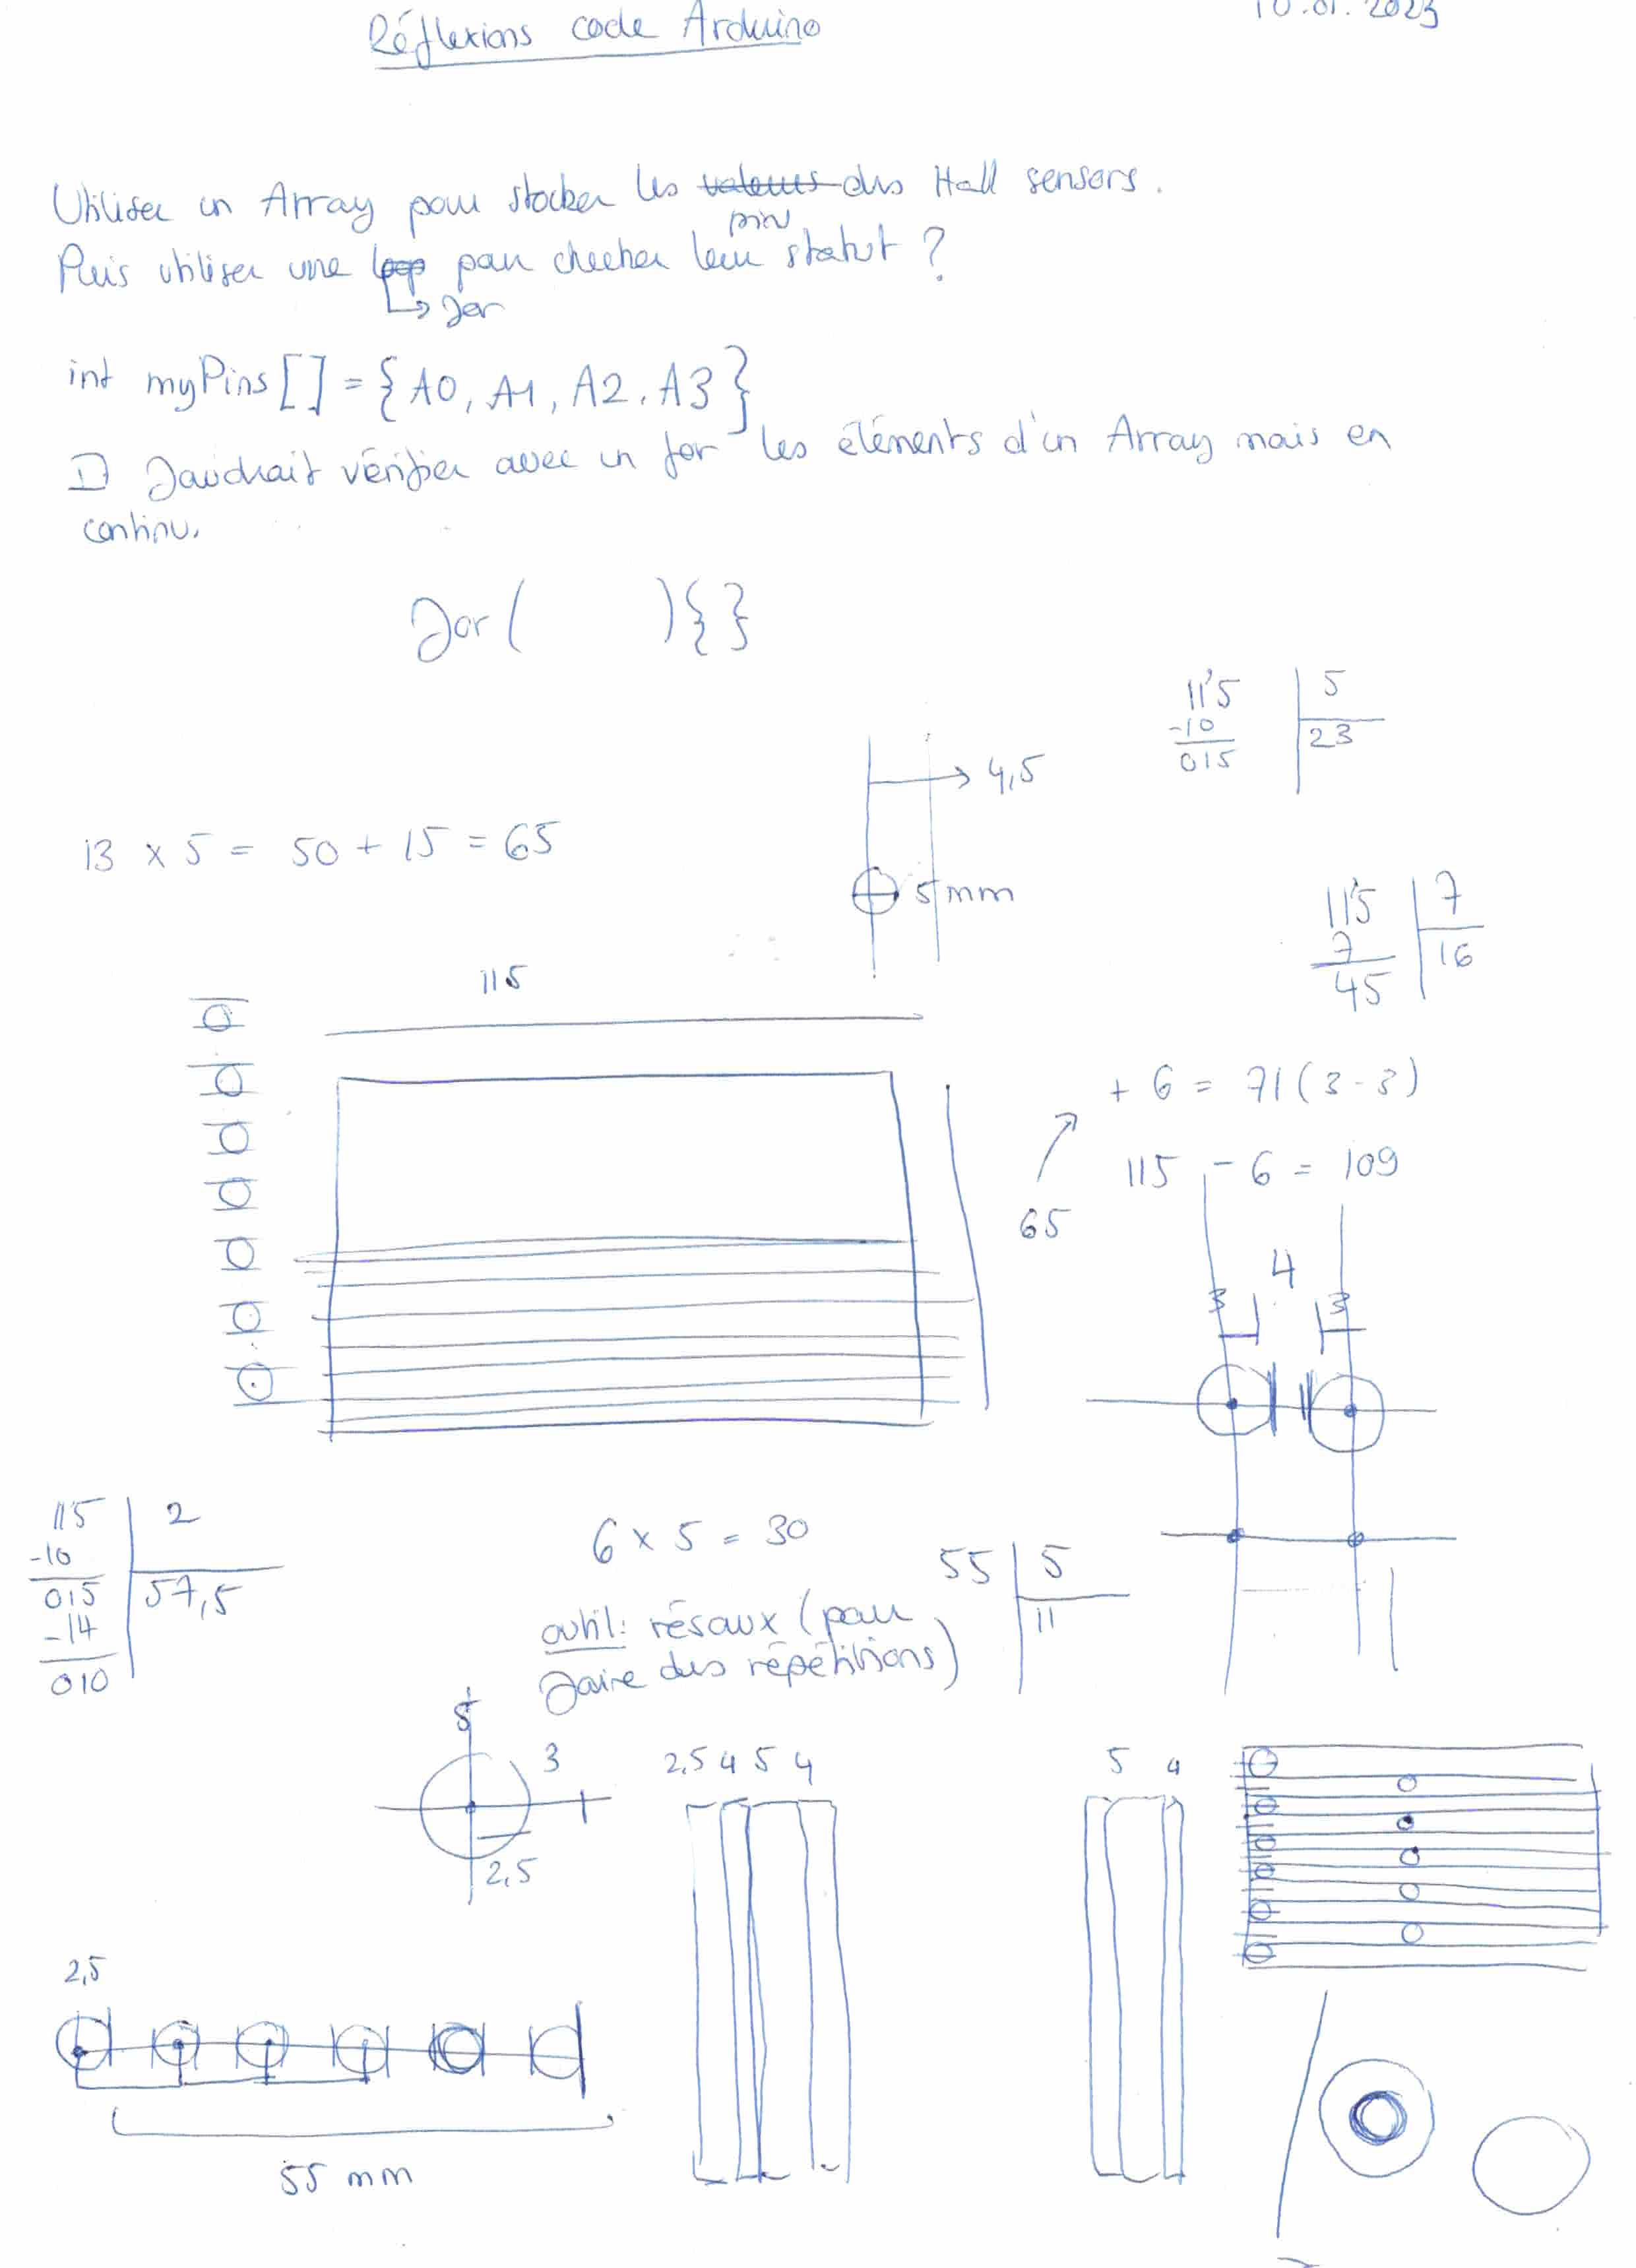 Réflexions code Arduino
10.01.2023
Utiliser un Array pour stocker les valeurs des Hall sensors.
pin
Puis utiliser une loop pour checker leur statut ?
↳ for
int myPins [] = {A0, A1, A2, A3}
Il faudrait vérifier avec un for les éléments d'un Array mais en
continu.
for ( ) { }
115 | 5
-10 | 23
015
4,5
13 x 5 = 50 + 15 = 65
5 mm
115 | 7
7 | 16
45
115
+ 6 = 71 (3-3)
115 - 6 = 109
65
4
3 3
115 | 2
-10 | 57,5
015
-14
010
6 x 5 = 30
55 | 5
11
outil: résaux (pour
faire des répétitions)
5
3
2,5
2,5 4 5 4
5 4
2,5
55 mm